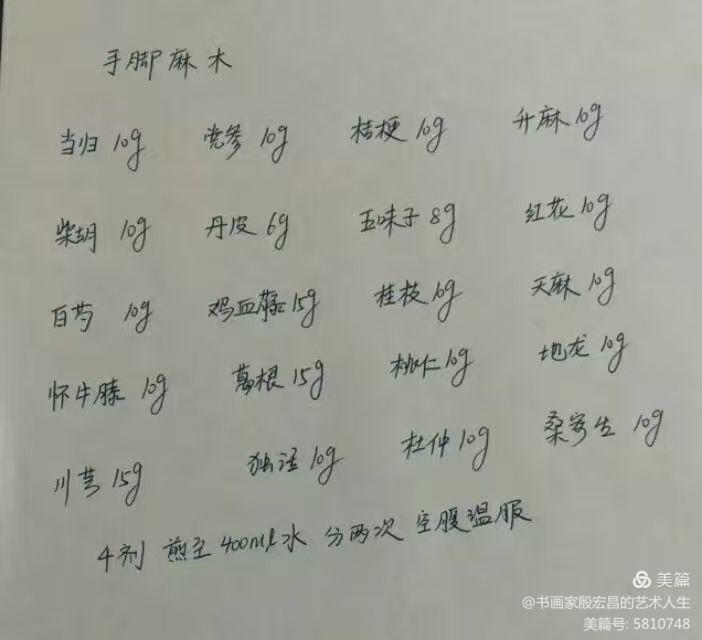 手脚麻木
当归 10g 党参 10g 桔梗 10g 升麻 10g
柴胡 10g 丹皮 6g 五味子 8g 红花 10g
白芍 10g 鸡血藤 15g 桂枝 6g 天麻 10g
怀牛膝 10g 葛根 15g 桃仁 10g 地龙 10g
川芎 15g 独活 10g 杜仲 10g 桑寄生 10g
4剂 煎至400ml水 分两次 空腹温服
美篇
@书画家殷宏昌的艺术人生
美篇号: 5810748